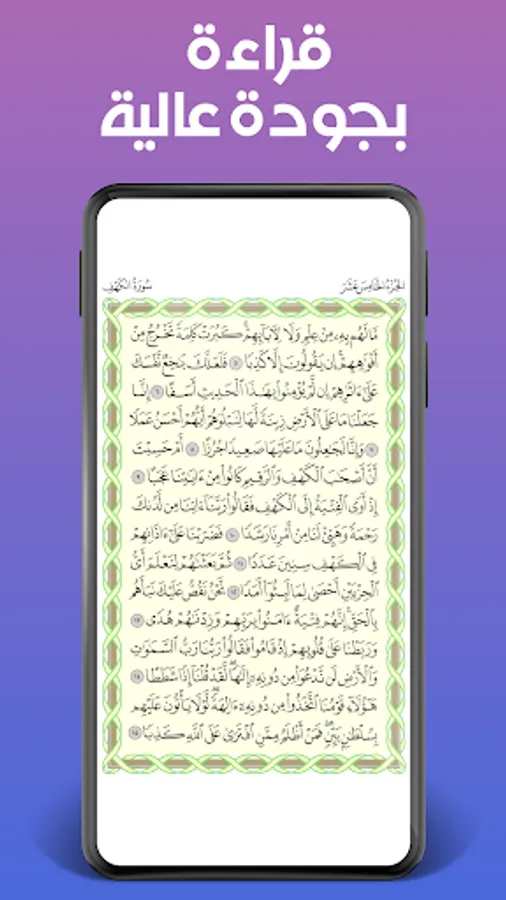 قراءة
بجودة عالية
الجزء الخامس عشر
سورة الكهف
مَّا لَهُم بِهِۦ مِنْ عِلْمٍ وَلَا لِءَابَآئِهِمْ ۚ كَبُرَتْ كَلِمَةً تَخْرُجُ مِنْ
أَفْوَٰهِهِمْ ۚ إِن يَقُولُونَ إِلَّا كَذِبًا ٥ فَلَعَلَّكَ بَٰخِعٌ نَّفْسَكَ
عَلَىٰٓ ءَاثَٰرِهِمْ إِن لَّمْ يُؤْمِنُوا۟ بِهَٰذَا ٱلْحَدِيثِ أَسَفًا ٦ إِنَّا
جَعَلْنَا مَا عَلَى ٱلْأَرْضِ زِينَةً لَّهَا لِنَبْلُوَهُمْ أَيُّهُمْ أَحْسَنُ عَمَلًا
٧ وَإِنَّا لَجَٰعِلُونَ مَا عَلَيْهَا صَعِيدًا جُرُزًا ٨ أَمْ حَسِبْتَ
أَنَّ أَصْحَٰبَ ٱلْكَهْفِ وَٱلرَّقِيمِ كَانُوا۟ مِنْ ءَايَٰتِنَا عَجَبًا ٩
إِذْ أَوَى ٱلْفِتْيَةُ إِلَى ٱلْكَهْفِ فَقَالُوا۟ رَبَّنَآ ءَاتِنَا مِن لَّدُنكَ
رَحْمَةً وَهَيِّئْ لَنَا مِنْ أَمْرِنَا رَشَدًا ١٠ فَضَرَبْنَا عَلَىٰٓ ءَاذَانِهِمْ
فِى ٱلْكَهْفِ سِنِينَ عَدَدًا ١١ ثُمَّ بَعَثْنَٰهُمْ لِنَعْلَمَ أَىُّ
ٱلْحِزْبَيْنِ أَحْصَىٰ لِمَا لَبِثُوٓا۟ أَمَدًا ١٢ نَّحْنُ نَقُصُّ عَلَيْكَ نَبَأَهُم
بِٱلْحَقِّ ۚ إِنَّهُمْ فِتْيَةٌ ءَامَنُوا۟ بِرَبِّهِمْ وَزِدْنَٰهُمْ هُدًى ١٣
وَرَبَطْنَا عَلَىٰ قُلُوبِهِمْ إِذْ قَامُوا۟ فَقَالُوا۟ رَبُّنَا رَبُّ ٱلسَّمَٰوَٰتِ
وَٱلْأَرْضِ لَن نَّدْعُوَا۟ مِن دُونِهِۦٓ إِلَٰهًا ۖ لَّقَدْ قُلْنَآ إِذًا شَطَطًا ١٤
هَٰٓؤُلَآءِ قَوْمُنَا ٱتَّخَذُوا۟ مِن دُونِهِۦٓ ءَالِهَةً ۖ لَّوْلَا يَأْتُونَ عَلَيْهِم
بِسُلْطَٰنٍۭ بَيِّنٍ ۖ فَمَنْ أَظْلَمُ مِمَّنِ ٱفْتَرَىٰ عَلَى ٱللَّهِ كَذِبًا ١٥